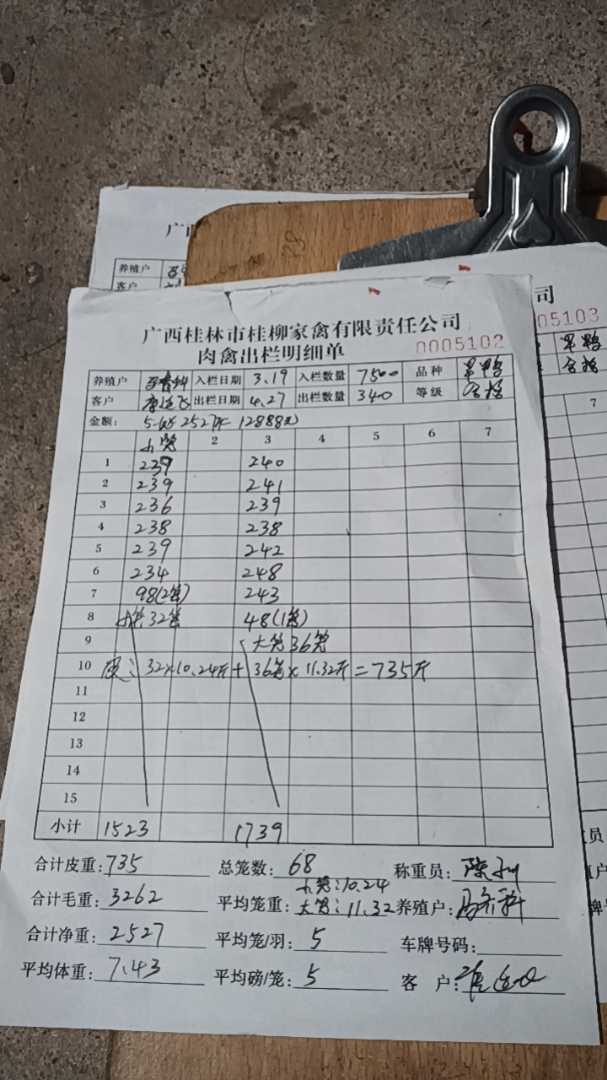 广西桂林市桂柳家禽有限责任公司
肉禽出栏明细单 0005102
养殖户 入栏日期 3.19 入栏数量 7500 品种
客户 出栏日期 4.27 出栏数量 340 等级 合格
金额: 2527斤 12888元
小笼 2 3 4 5 6 7
1 239 240
2 239 241
3 236 239
4 238 238
5 239 242
6 234 248
7 98(2笼) 243
8 小笼32笼 48(1笼)
9 大笼36笼
10 皮: 32×10.24斤+36笼×11.32斤=735斤
11
12
13
14
15
小计 1523 1739
合计皮重: 735 总笼数: 68 称重员:
合计毛重: 3262 平均笼重: 小笼:10.24 大笼:11.32 养殖户:
合计净重: 2527 平均笼/羽: 5 车牌号码:
平均体重: 7.43 平均磅/笼: 5 客户:
司
05103
合格
7
养殖户
客户